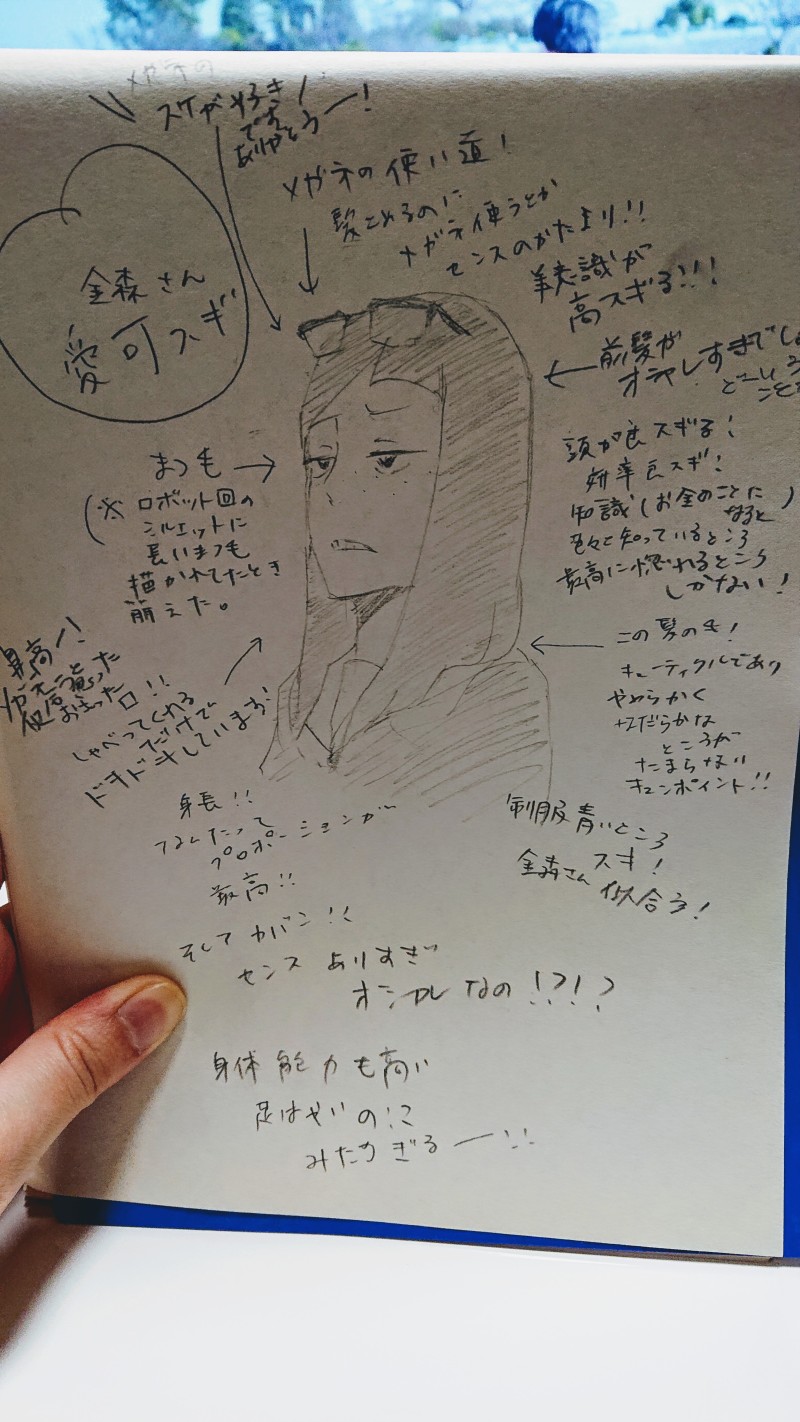 メガネの
スケが好き！
です
ありがとうー！
メガネの使い道！
髪とめるのに
メガネ使うとか
センスのかたまり!!
美意識が
高スギる!!!
金森さん
愛可スギ
前髪が
オシャレすぎでしょ
どーいう
こと
まつ毛
(※ロボット回の
シルエットに
長いまつ毛
描かれてたとき
萌えた。
頭が良スギる！
効率良スギ！
知識(お金のことに
なると)
色々と知っているところ
最高に惚れるところ
しかない！
この髪の毛！
キューティクルであり
やわらかく
なだらかな
ところが
たまらない
キュンポイント!!
最高ー！
口!!
しゃべってくれる
だけで
ドキドキしています！
身長!!
なんたって
プロポーションが
最高!!
制服青いところ
スキ！
金森さん似合う！
そしてカバン!!
センスありすぎ
オシャレなの!?!?
身体能力も高い
足はやいの!?
みたすぎるー!!